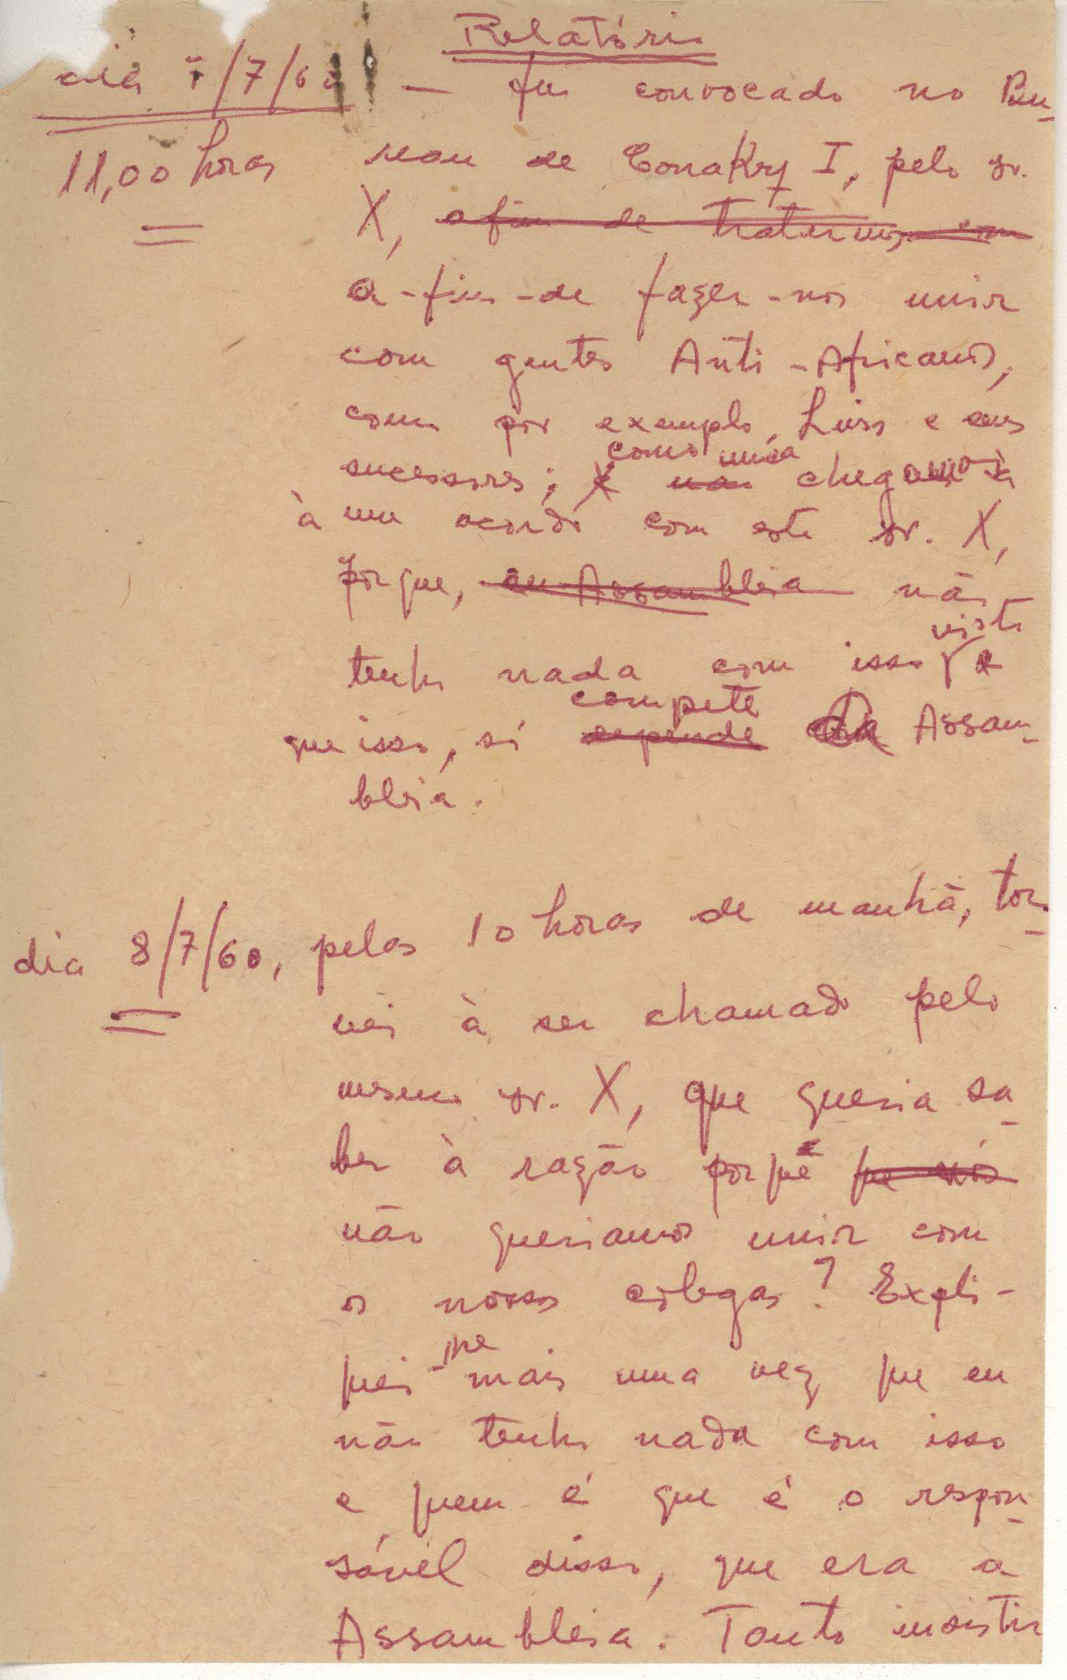 Relatório
dia 7/7/60 — fui convocado no Bu-
11,00 horas reau de Conakry I, pelo sr.
X, a fim de tratarmos com
a-fim-de fazer-nos unir
com gentes Anti-Africanos,
como por exemplo, Liss e seus
como nunca
sucessores; e não chegamos
à um acordo com este sr. X,
Porque, eu Assambleia não
visto
tenho nada com isso
compete
que isso, só depende da Assam-
bleia.
dia 8/7/60, pelas 10 horas de manhã, tor-
nei à ser chamado pelo
mesmo sr. X, que queria sa-
ber à razão porque que nós
não queriamos unir com
os nossos colegas? Expli-
me
quei- mais uma vez que eu
não tenho nada com isso
e quem é que é o respon-
sável disso, que era a
Assambleia. Tanto insistir